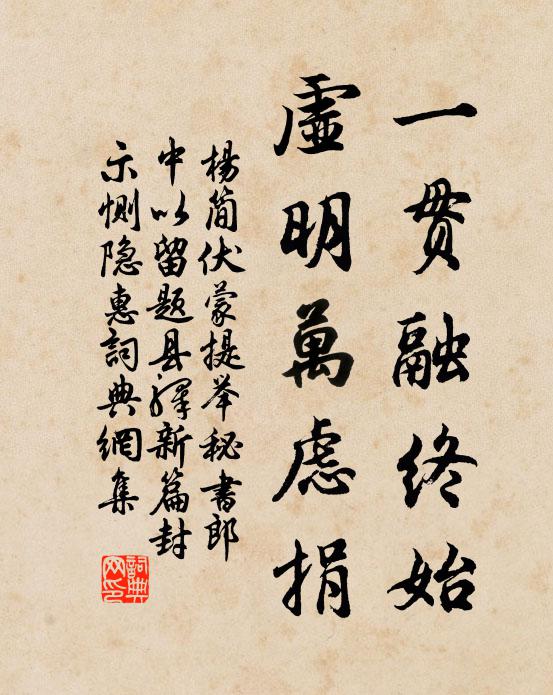 一貫融終始
虛明萬慮捐
楊簡伏蒙提举秘書郎
中以留題县驿新篇封
示惻隐惠詞典網集
詞典
网印